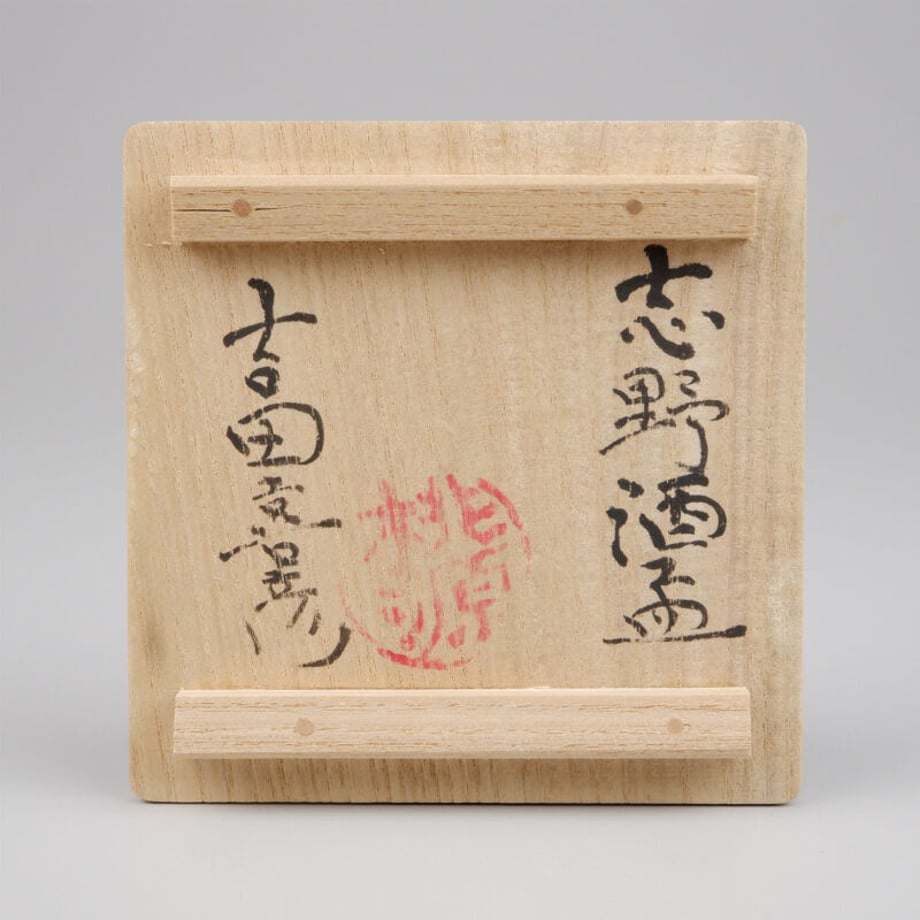 志野酒盃
吉田喜彦